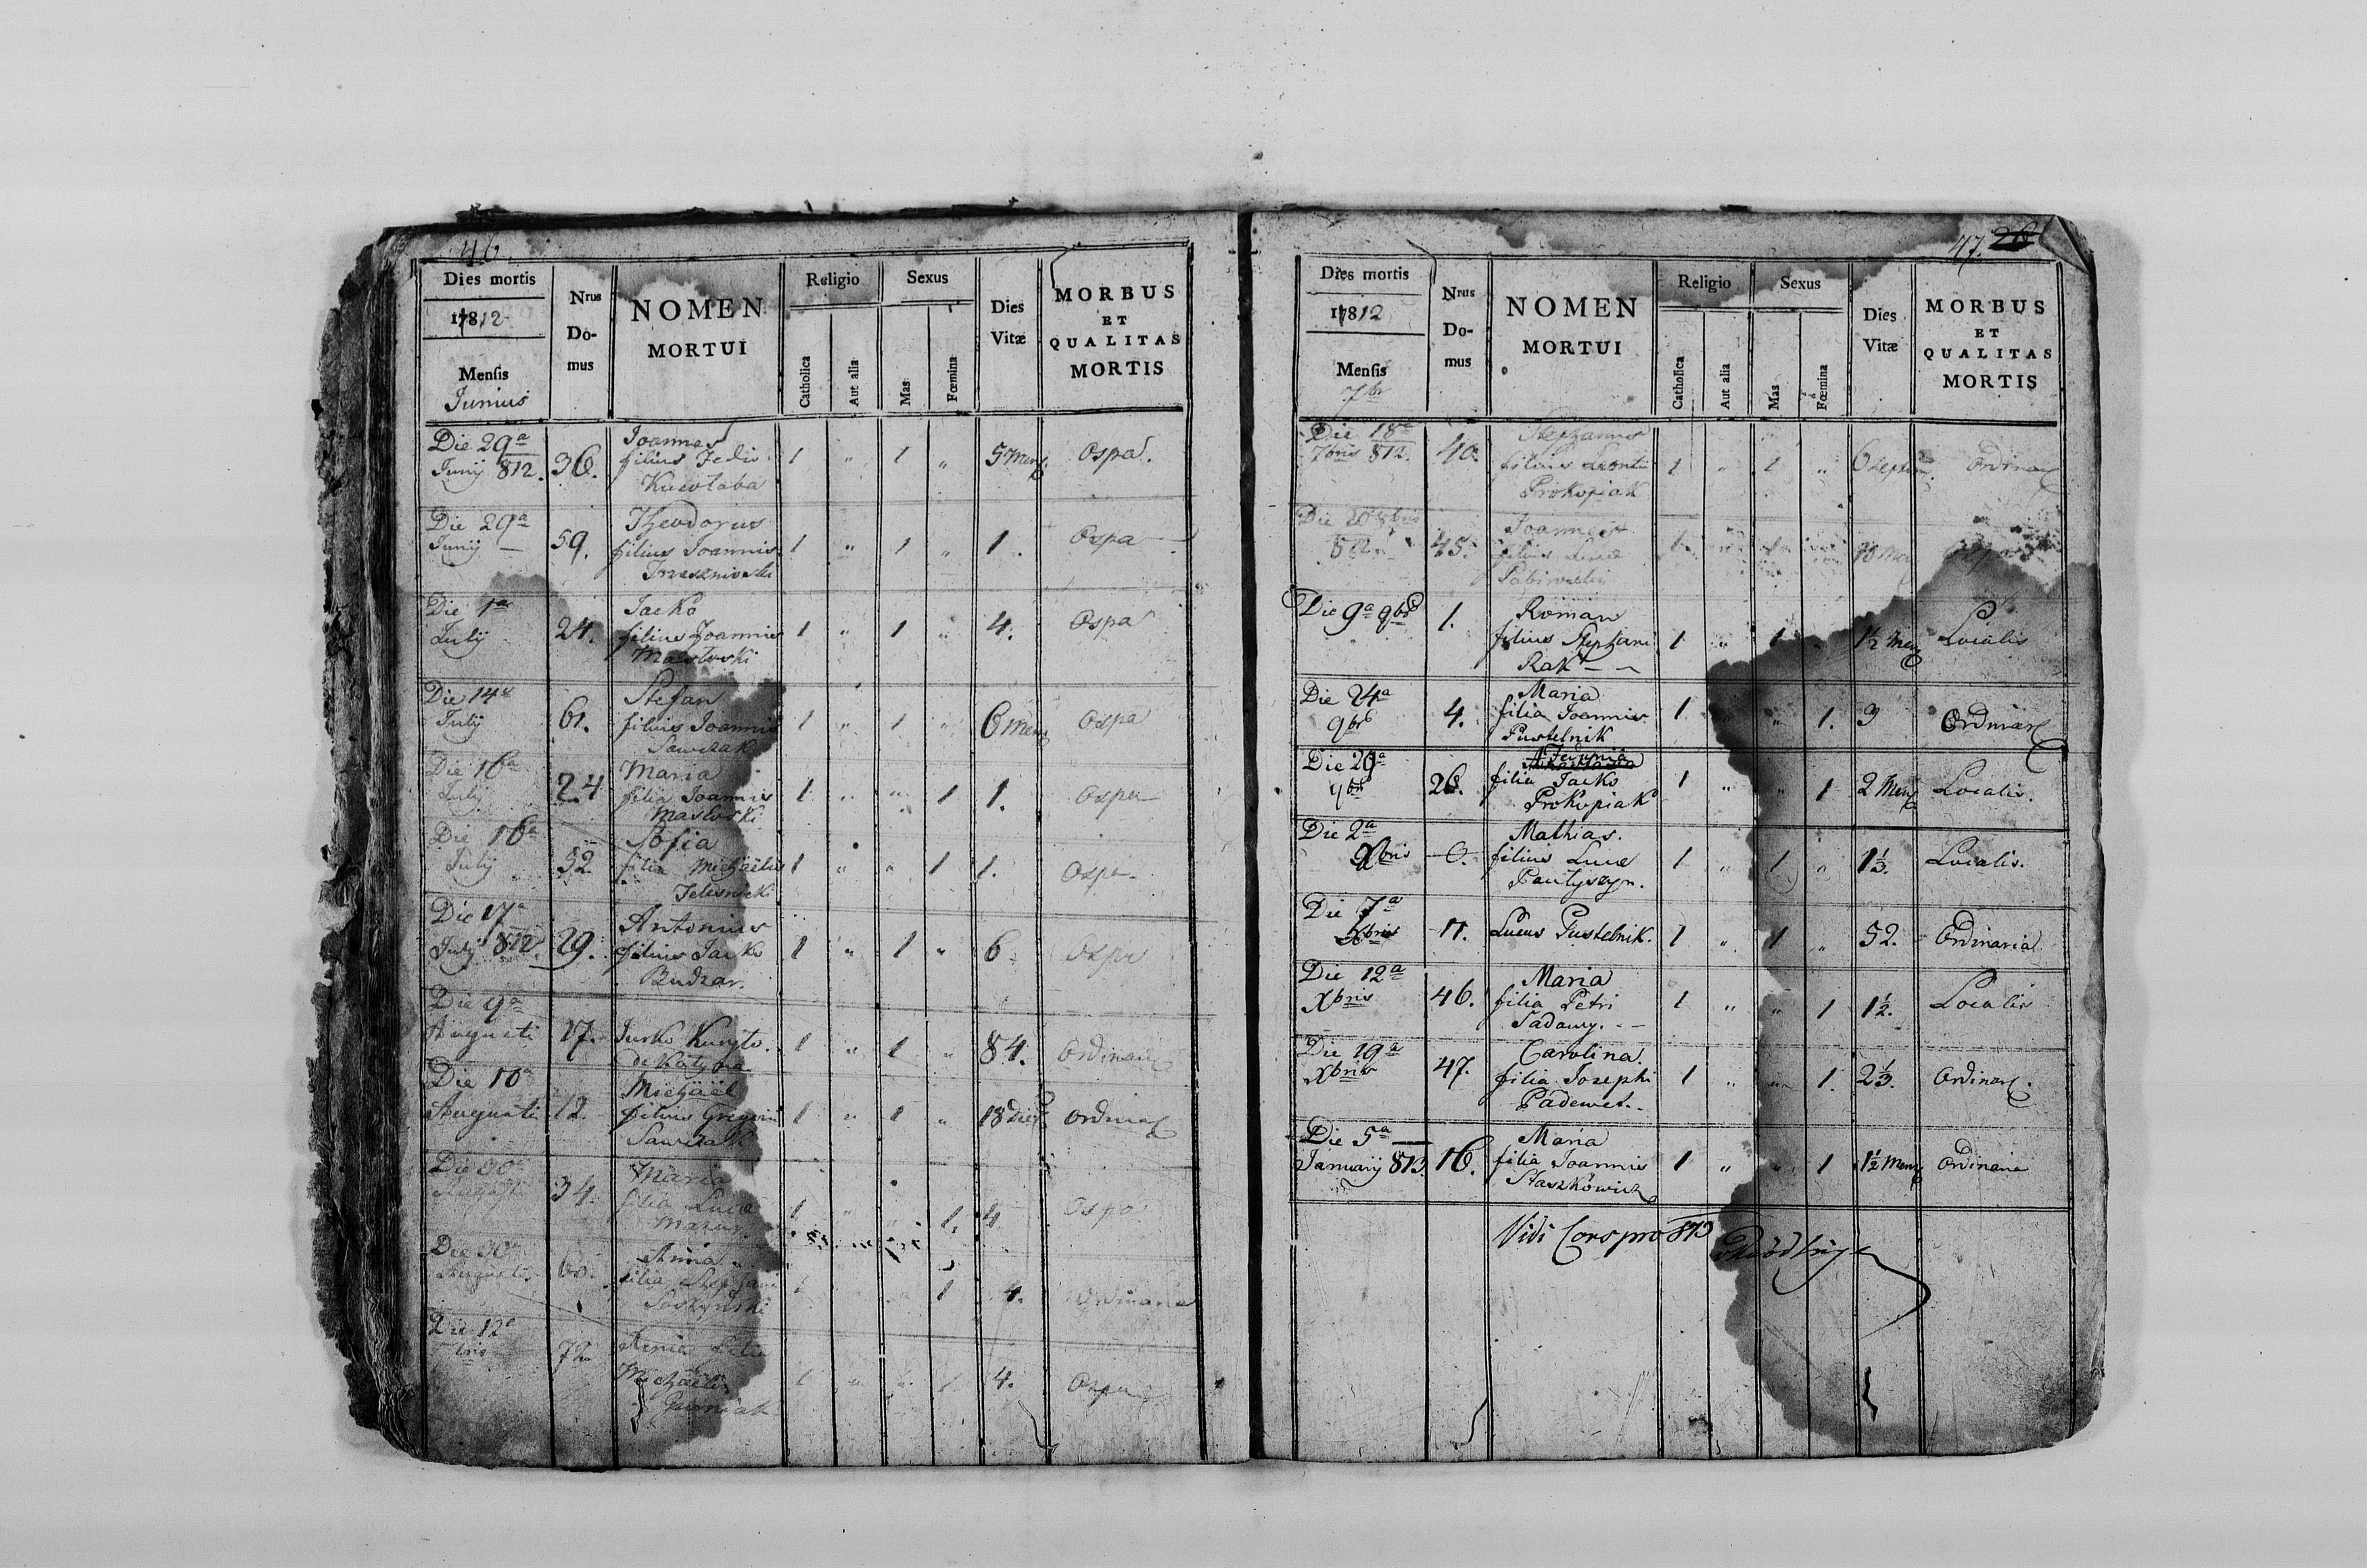 46.
Dies mortis
Nrus Domus
NOMEN MORTUI
Religio
Sexus
Dies Vitæ
MORBUS ET QUALITAS MORTIS
17812
Mensis
Junius
Catholica
Aut alia
Mas
Fœmina
Die 29a Junij 812. 36. Joannes filius Fedio 1 " 1 " 5 Mens Ospa.
Die 29a Junij — 59. Theodorus filius Joannis 1 " 1 " 1. Ospa
Die 1a Julij 24. Jacko filius Joannis Maslovski 1 " 1 " 4. Ospa
Die 14a Julij 61. Stefan filius Joannis Sawczak 1 " 1 " 6 Mens Ospa
Die 16a Julij 24 Maria filia Joannis Maslovski 1 " " 1 1. Ospa
Die 16a Julij 52. Sofia filia Michäelis 1 " " 1 1. Ospa.
Die 17a Julij 812. 29. Antonius filius Jacko Budzar. 1 " 1 " 6. Ospa
Die 9a Augusti 17. Jurko 1 " 1 " 84. Ordinar
Die 10a Augusti 12. Michäel filius Gregorii Sawczak 1 " 1 " 18 Dies Ordinar
Die 30a Augusti 34. Maria filia Lucæ Mazur. 1 " " 1. 4. Ospa
Die 30a Augusti Anna filia Stephani 1 4. Ordinaria
Die 12a 72 filia Michäelis 1 " " 1 4. Ospa
47. 26
Dies mortis
Nrus Domus
NOMEN MORTUI
Religio
Sexus
Dies Vitæ
MORBUS ET QUALITAS MORTIS
17812
Mensis
7br
Catholica
Aut alia
Mas
Fœmina
Die 18a 7bris 812. 40. Stephanus filius Leontii Prokopiak 1 " 1 " 6 Ordinar
Die 812. 45. Joannes filius Lucæ 1 " 1 "
Die 9a 9bris 1. Roman filius Stephani Rak — 1 " 1 " 1½ Mens Localis
Die 24a 9bris 4. Maria filia Joannis Pustelnik 1 " " 1. 3 Ordinar
Die 29a 9bris 26. filia Jacko Prokopiak 1 " " 1 2 Mens Localis.
Die 2a Xbris 6. Mathias. filius Lucæ Pantyszyn. 1 " 1 " 1⅓. Localis.
Die 7a Xbris 11. Lucas Pustelnik. 1 " 1 " 52. Ordinaria
Die 12a Xbris 46. Maria filia Petri Sadowy. — 1 " " 1 1½. Localis
Die 19a Xbris 47. Carolina. filia Josephi Padewet. 1 " " 1. 2⅓. Ordinar.
Die 5a Januarij 813. 16. Maria filia Joannis Staszkowicz 1 " " 1 1½ Mens Ordinaria
Vidi Cons pro 813